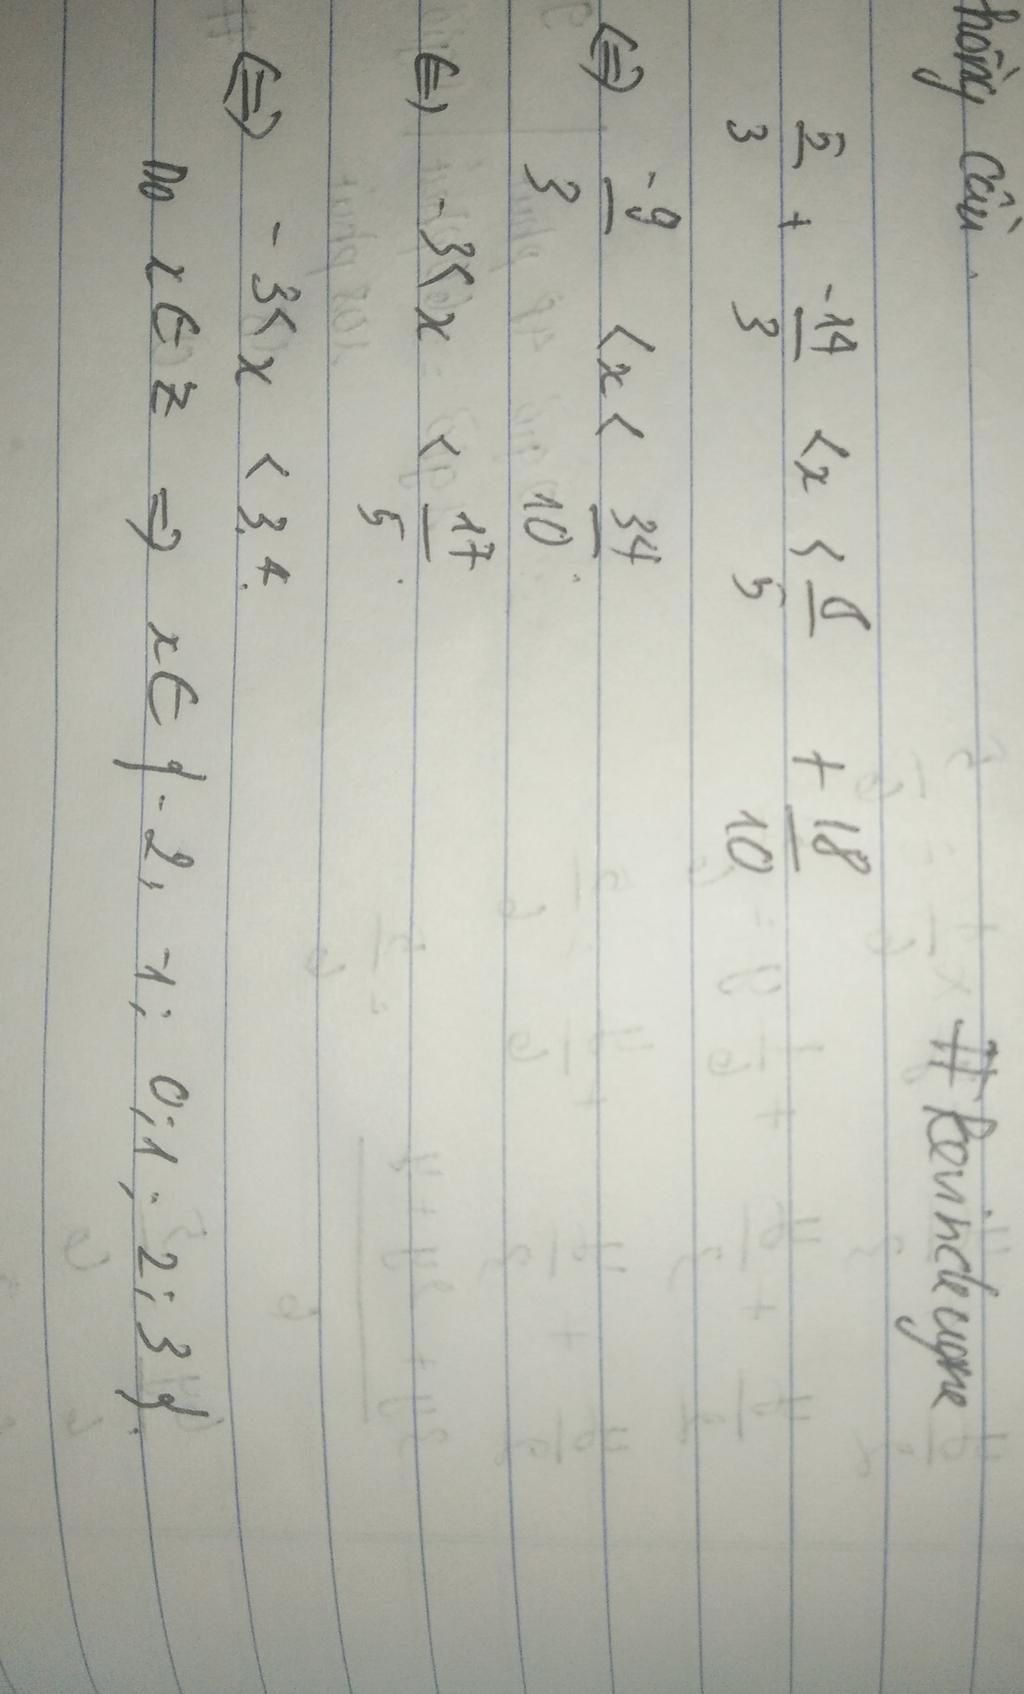 hồng cầu. # Bevindeyne
5/3 + -14/3 < x < 8/5 + 18/10
<=> -9/3 < x < 34/10
<=> -3 < x < 17/5
<=> -3 < x < 3,4
Do x ∈ Z => x ∈ {-2, -1; 0; 1; 2; 3}